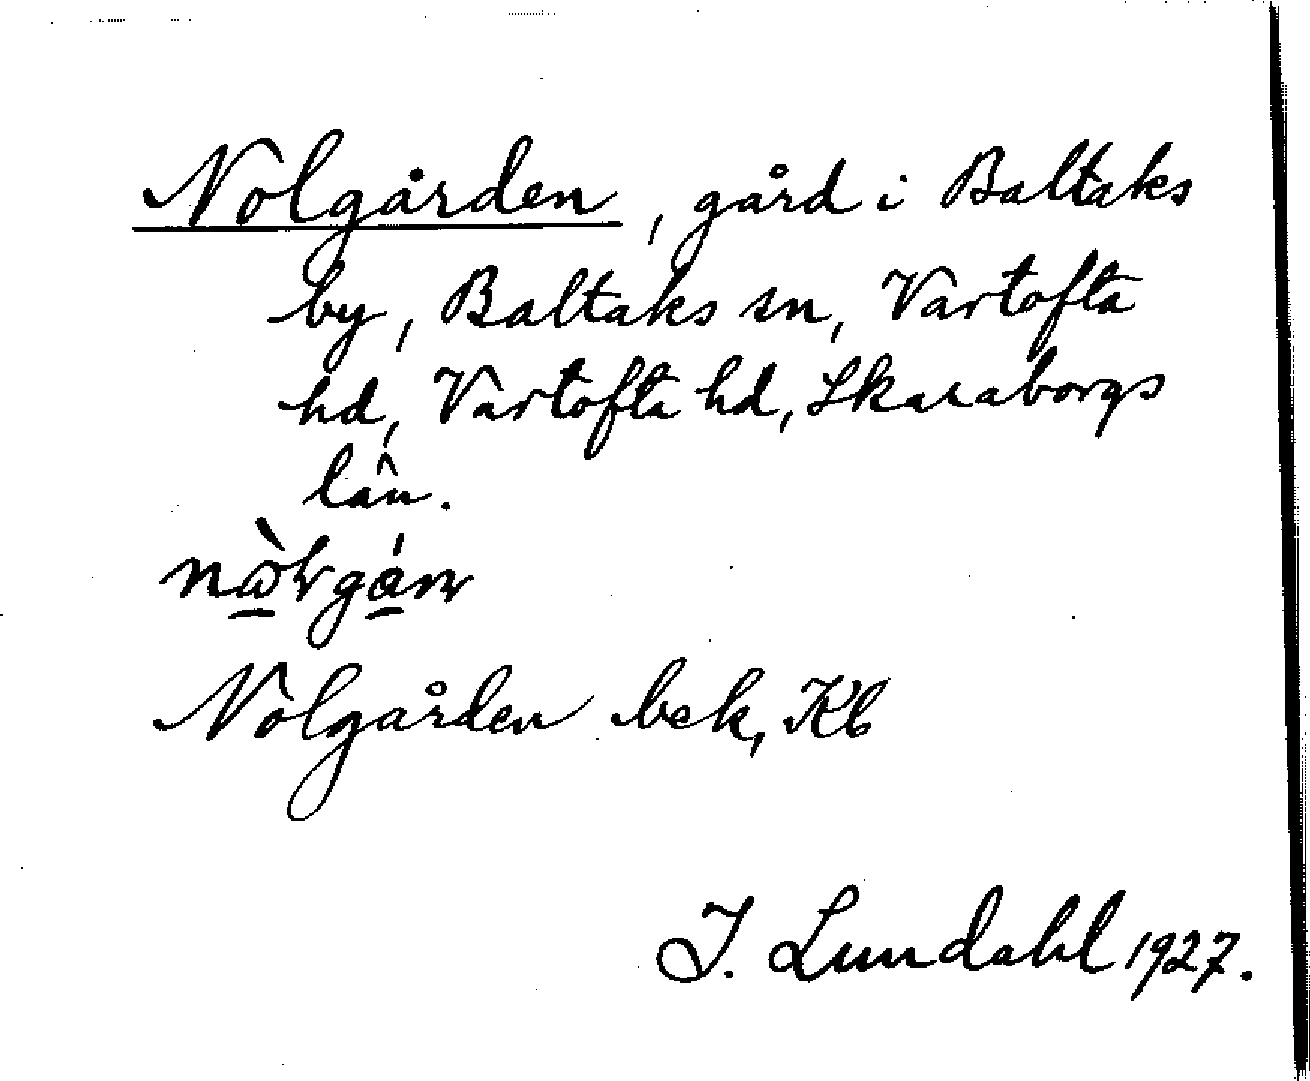 Nolgården, gård i Baltaks
by, Baltaks sn, Vartofta
hd, Vartofta hd, Skaraborgs
län.
Nolgården bek, Kb
I. Lundahl 1927.